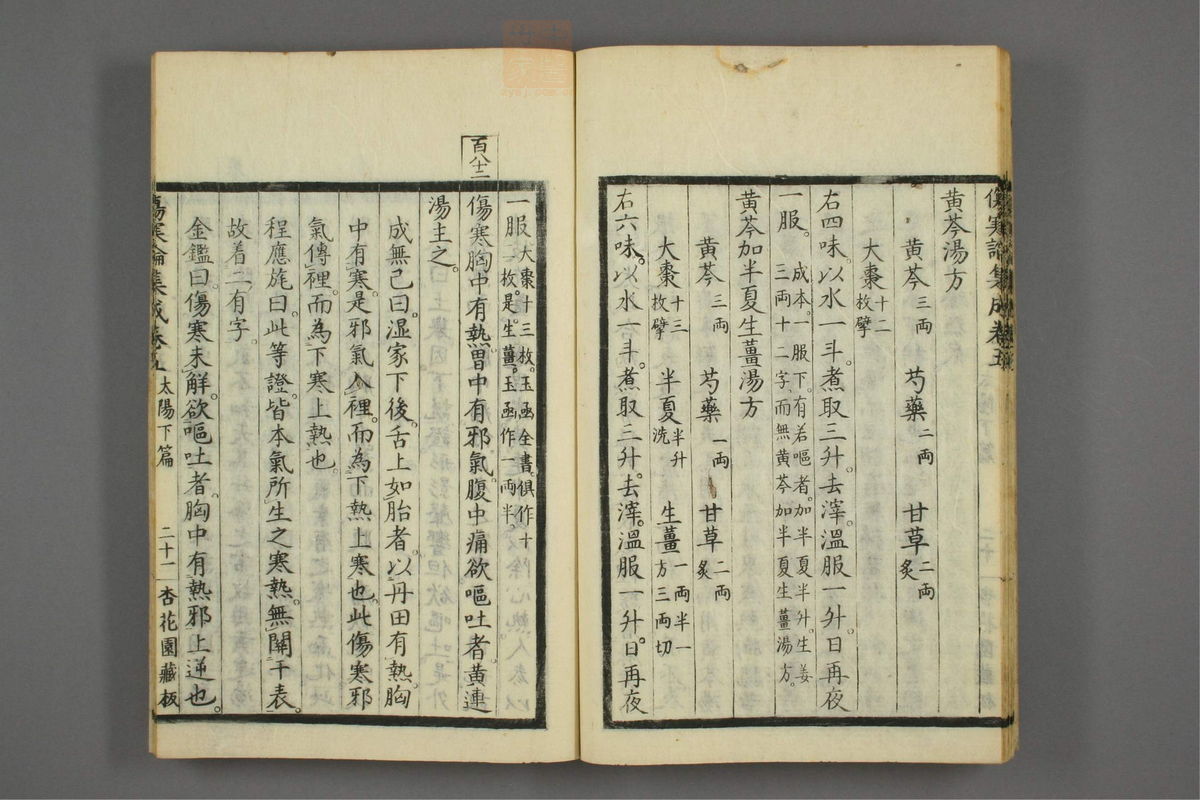 傷寒論集成卷五
黃芩湯方
黃芩三両　芍藥二両　甘草二両炙
大棗十二枚擘
右四味。以水一斗。煮取三升。去滓。溫服一升。日再夜
一服。成本。一服下。有若嘔者。加半夏半升。生姜三両十二字。而無黃芩加半夏生薑湯方。
黃芩加半夏生薑湯方
黃芩三両　芍藥一両　甘草二両炙
大棗十三枚擘　半夏半升洗　生薑一両半一方三両切
右六味。以水一斗。煮取三升。去滓。溫服一升。日再夜
一服大棗十三枚。玉函全書。俱作十二枚。是。生薑。玉函作一両半。
百八十二
傷寒胸中有熱。胃中有邪氣。腹中痛。欲嘔吐者。黃連
湯主之。
成無己曰。湿家下後。舌上如胎者。以丹田有熱。胸
中有寒。是邪氣入裡。而為下熱上寒也。此傷寒邪
氣傳裡。而為下寒上熱也。
程應旄曰。此等證。皆本氣所生之寒熱。無關于表。
故着二有字。
金鑑曰。傷寒未解。欲嘔吐者。胸中有熱邪上逆也。
傷寒論集成卷五　太陽下篇　二十二　杏花園藏板